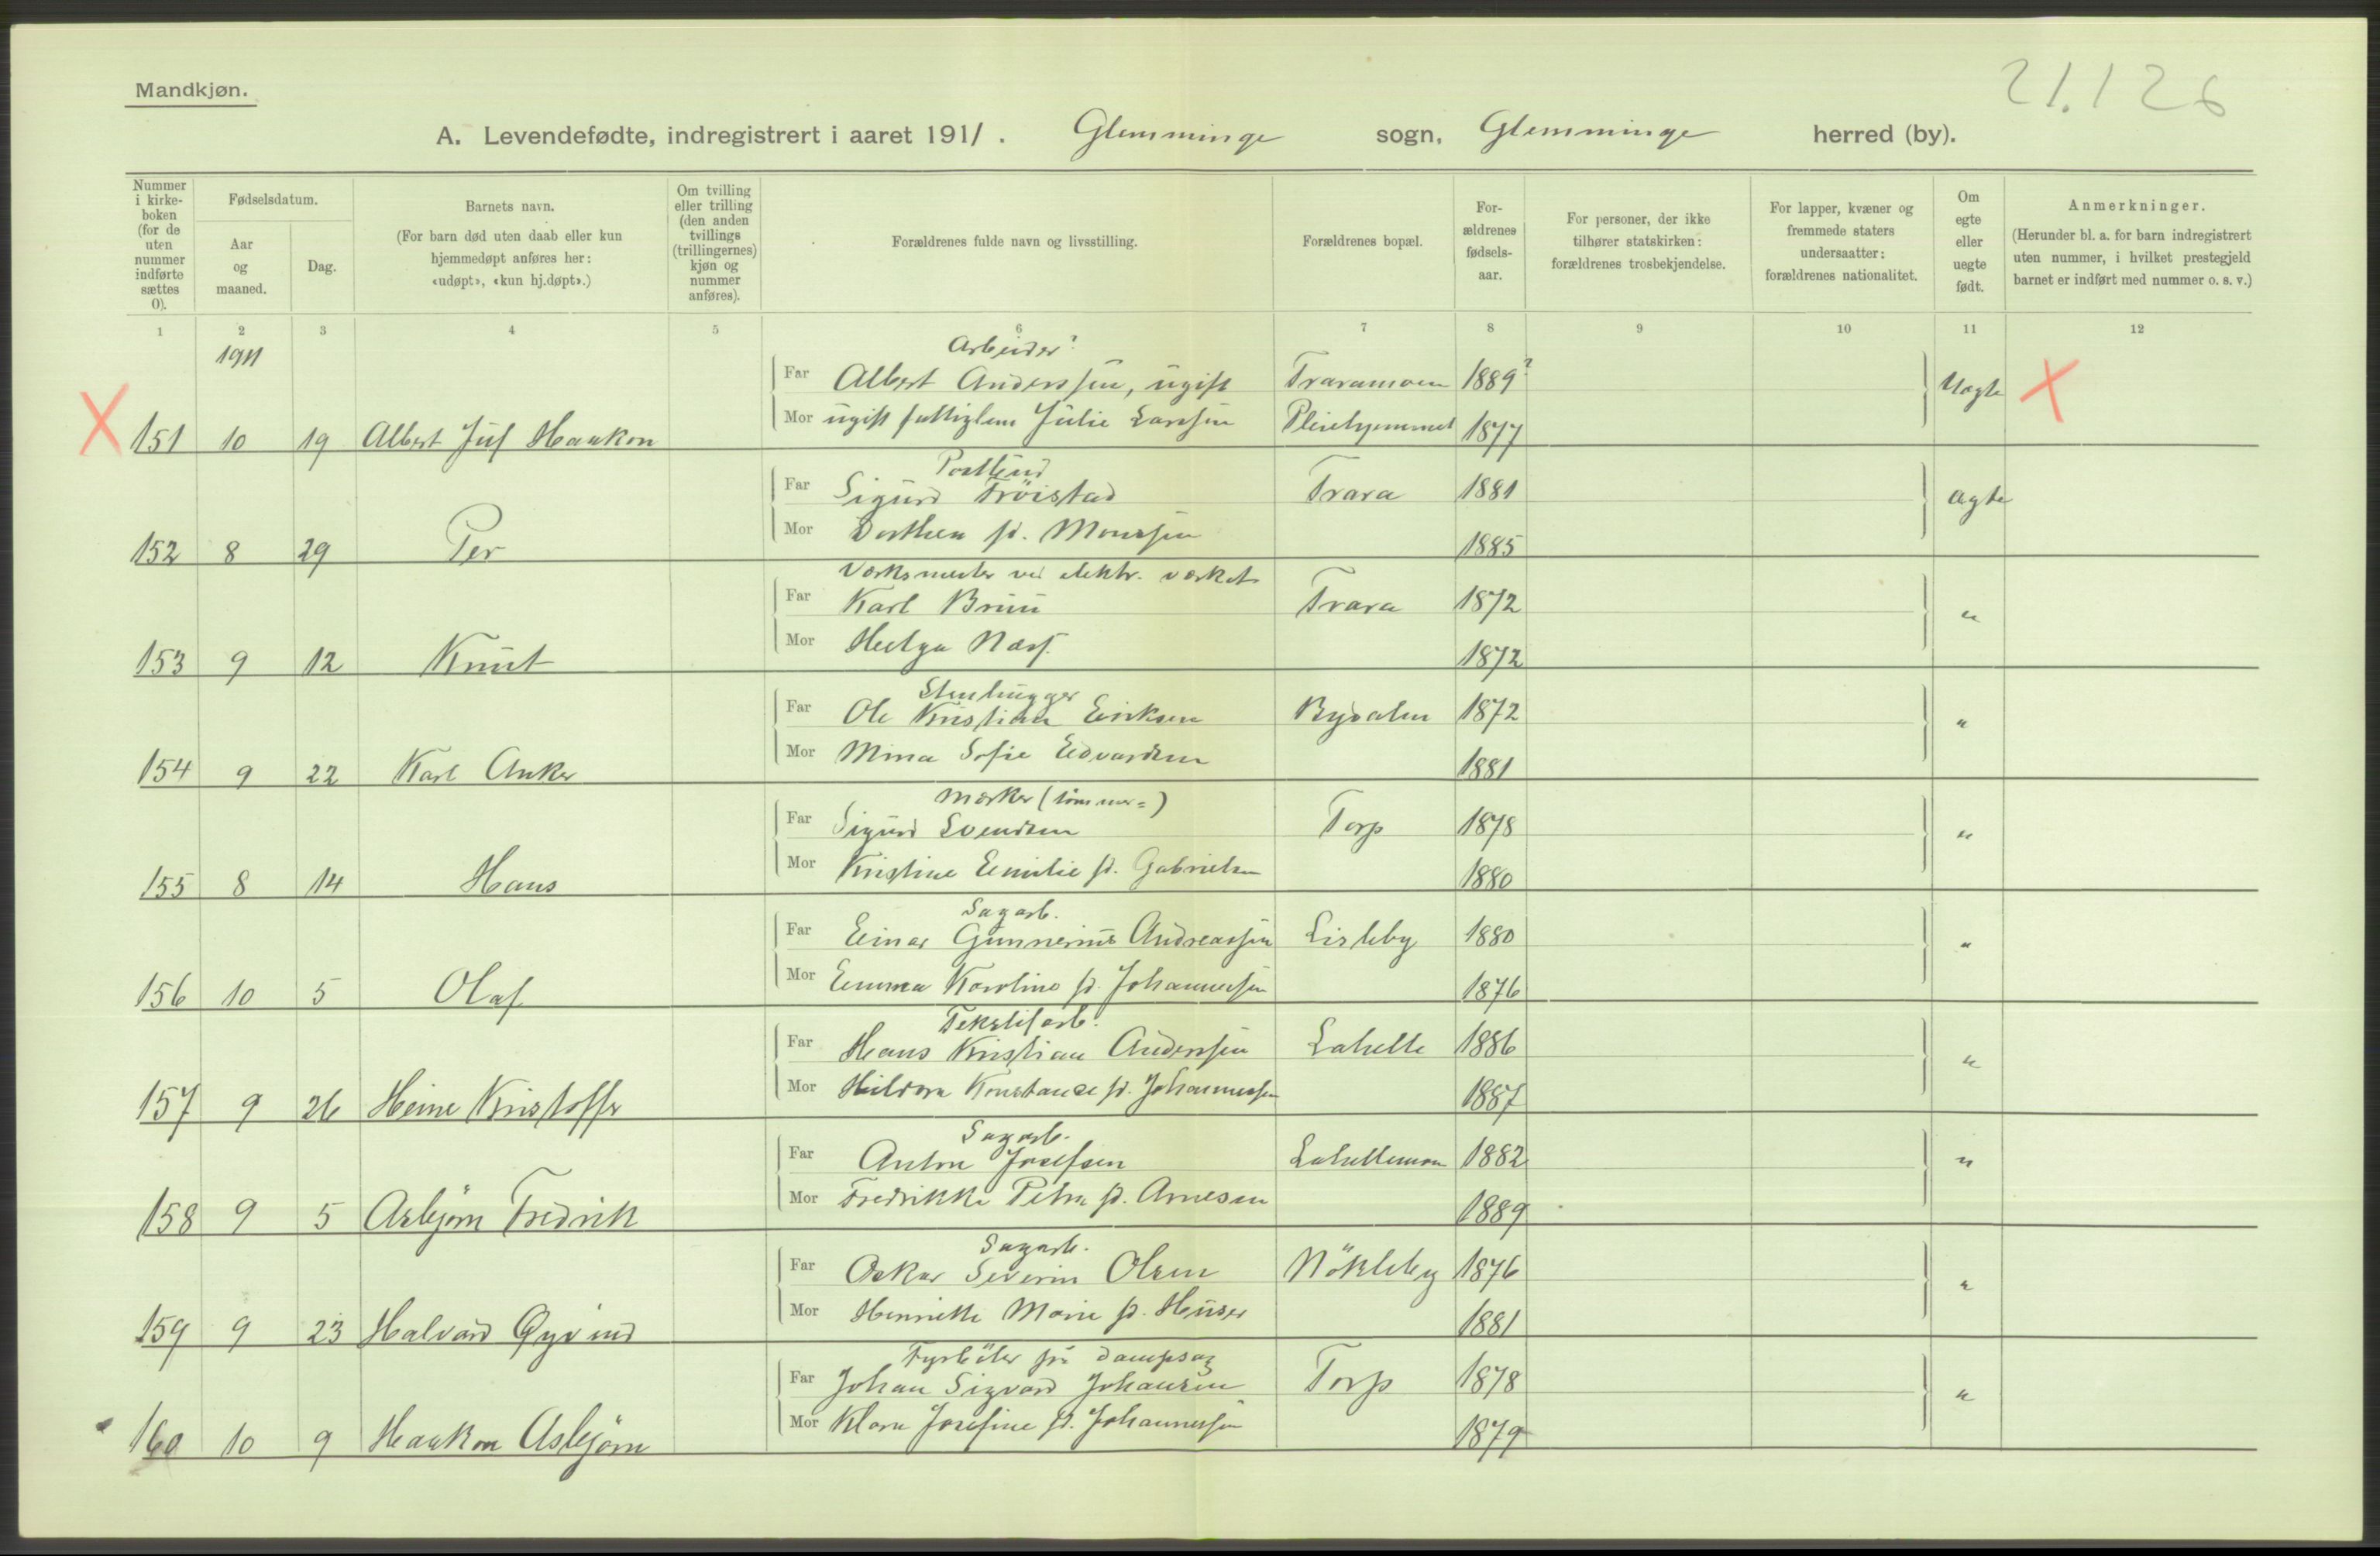 21.126
Mandkjøn.
A. Levendefødte, indregistrert i aaret 1911. Glemminge sogn, Glemminge herred (by).
Nummer i kirke-boken (for de uten nummer indførte sættes 0).
Fødselsdatum.
Aar og maaned.
Dag.
Barnets navn.
(For barn død uten daab eller kun hjemmedøpt anføres her: «udøpt», «kun hj.døpt».)
Om tvilling eller trilling (den anden tvillings (trillingernes) kjøn og nummer anføres).
Forældrenes fulde navn og livsstilling.
Forældrenes bopæl.
For-ældrenes fødsels-aar.
For personer, der ikke tilhører statskirken: forældrenes trosbekjendelse.
For lapper, kvæner og fremmede staters undersaatter: forældrenes nationalitet.
Om egte eller uegte født.
Anmerkninger.
(Herunder bl. a. for barn indregistrert uten nummer, i hvilket prestegjeld barnet er indført med nummer o. s. v.)
1 2 3 4 5 6 7 8 9 10 11 12
1911
Arbeider?
Far Albert Anderssen, ugift Traramoen 1889? Uegte
Mor ugift fattiglem Julie Larssen Pleiehjemmet 1877
X 151 10 19 Albert Juf Haakon X
Postbud
Far Sigurd Tröistad Trara 1881 Ægte
Mor Dorthea f. Monssen 1885
152 8 29 Per
Værksmester ved elektr. værket
Far Karl Bruu Trara 1872 "
Mor Helga Næss 1872
153 9 12 Knut
Stenhugger
Far Ole Kristian Eriksen Bydalen 1872 "
Mor Mina Sofie Edvardsen 1881
154 9 22 Karl Anker
Mærker (tømmer=)
Far Sigurd Svendsen Torp 1878 "
Mor Kristine Emilie f. Gabrielsen 1880
155 8 14 Hans
Sagarb.
Far Einar Gunnerius Andreassen Lisleby 1880 "
Mor Emma Karoline f. Johannessen 1876
156 10 5 Olaf
Tekstilarb.
Far Hans Kristian Anderssen Lahelle 1886 "
Mor Hildora Konstance f. Johannessen 1887
157 9 26 Heine Kristoffer
Sagarb.
Far Anton Josefsen Lahellemoen 1882 "
Mor Fredrikke Petra f. Arnesen 1889
158 9 5 Asbjørn Fredrik
Sagarb.
Far Oskar Severin Olsen Nökleby 1876 "
Mor Henriette Marie f. Huser 1881
159 9 23 Halvard Øyvind
Fyrböter på dampsag
Far Johan Sigvard Johansen Torp 1878 "
Mor Klara Josefine f. Johannessen 1879
160 10 9 Haakon Asbjörn